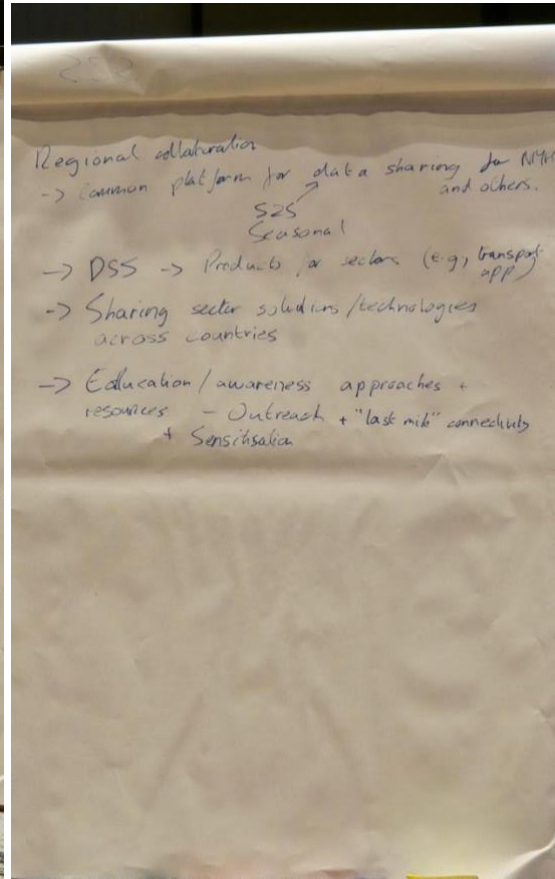 Regional collaboration
-> Common platform for data sharing for NMH
and others.
S2S
Seasonal
-> DSS -> Products for sectors (e.g, transport
app)
-> Sharing sector solutions/technologies
across countries
-> Education/awareness approaches +
resources - Outreach + "last mile" connectivity
+ Sensitisation